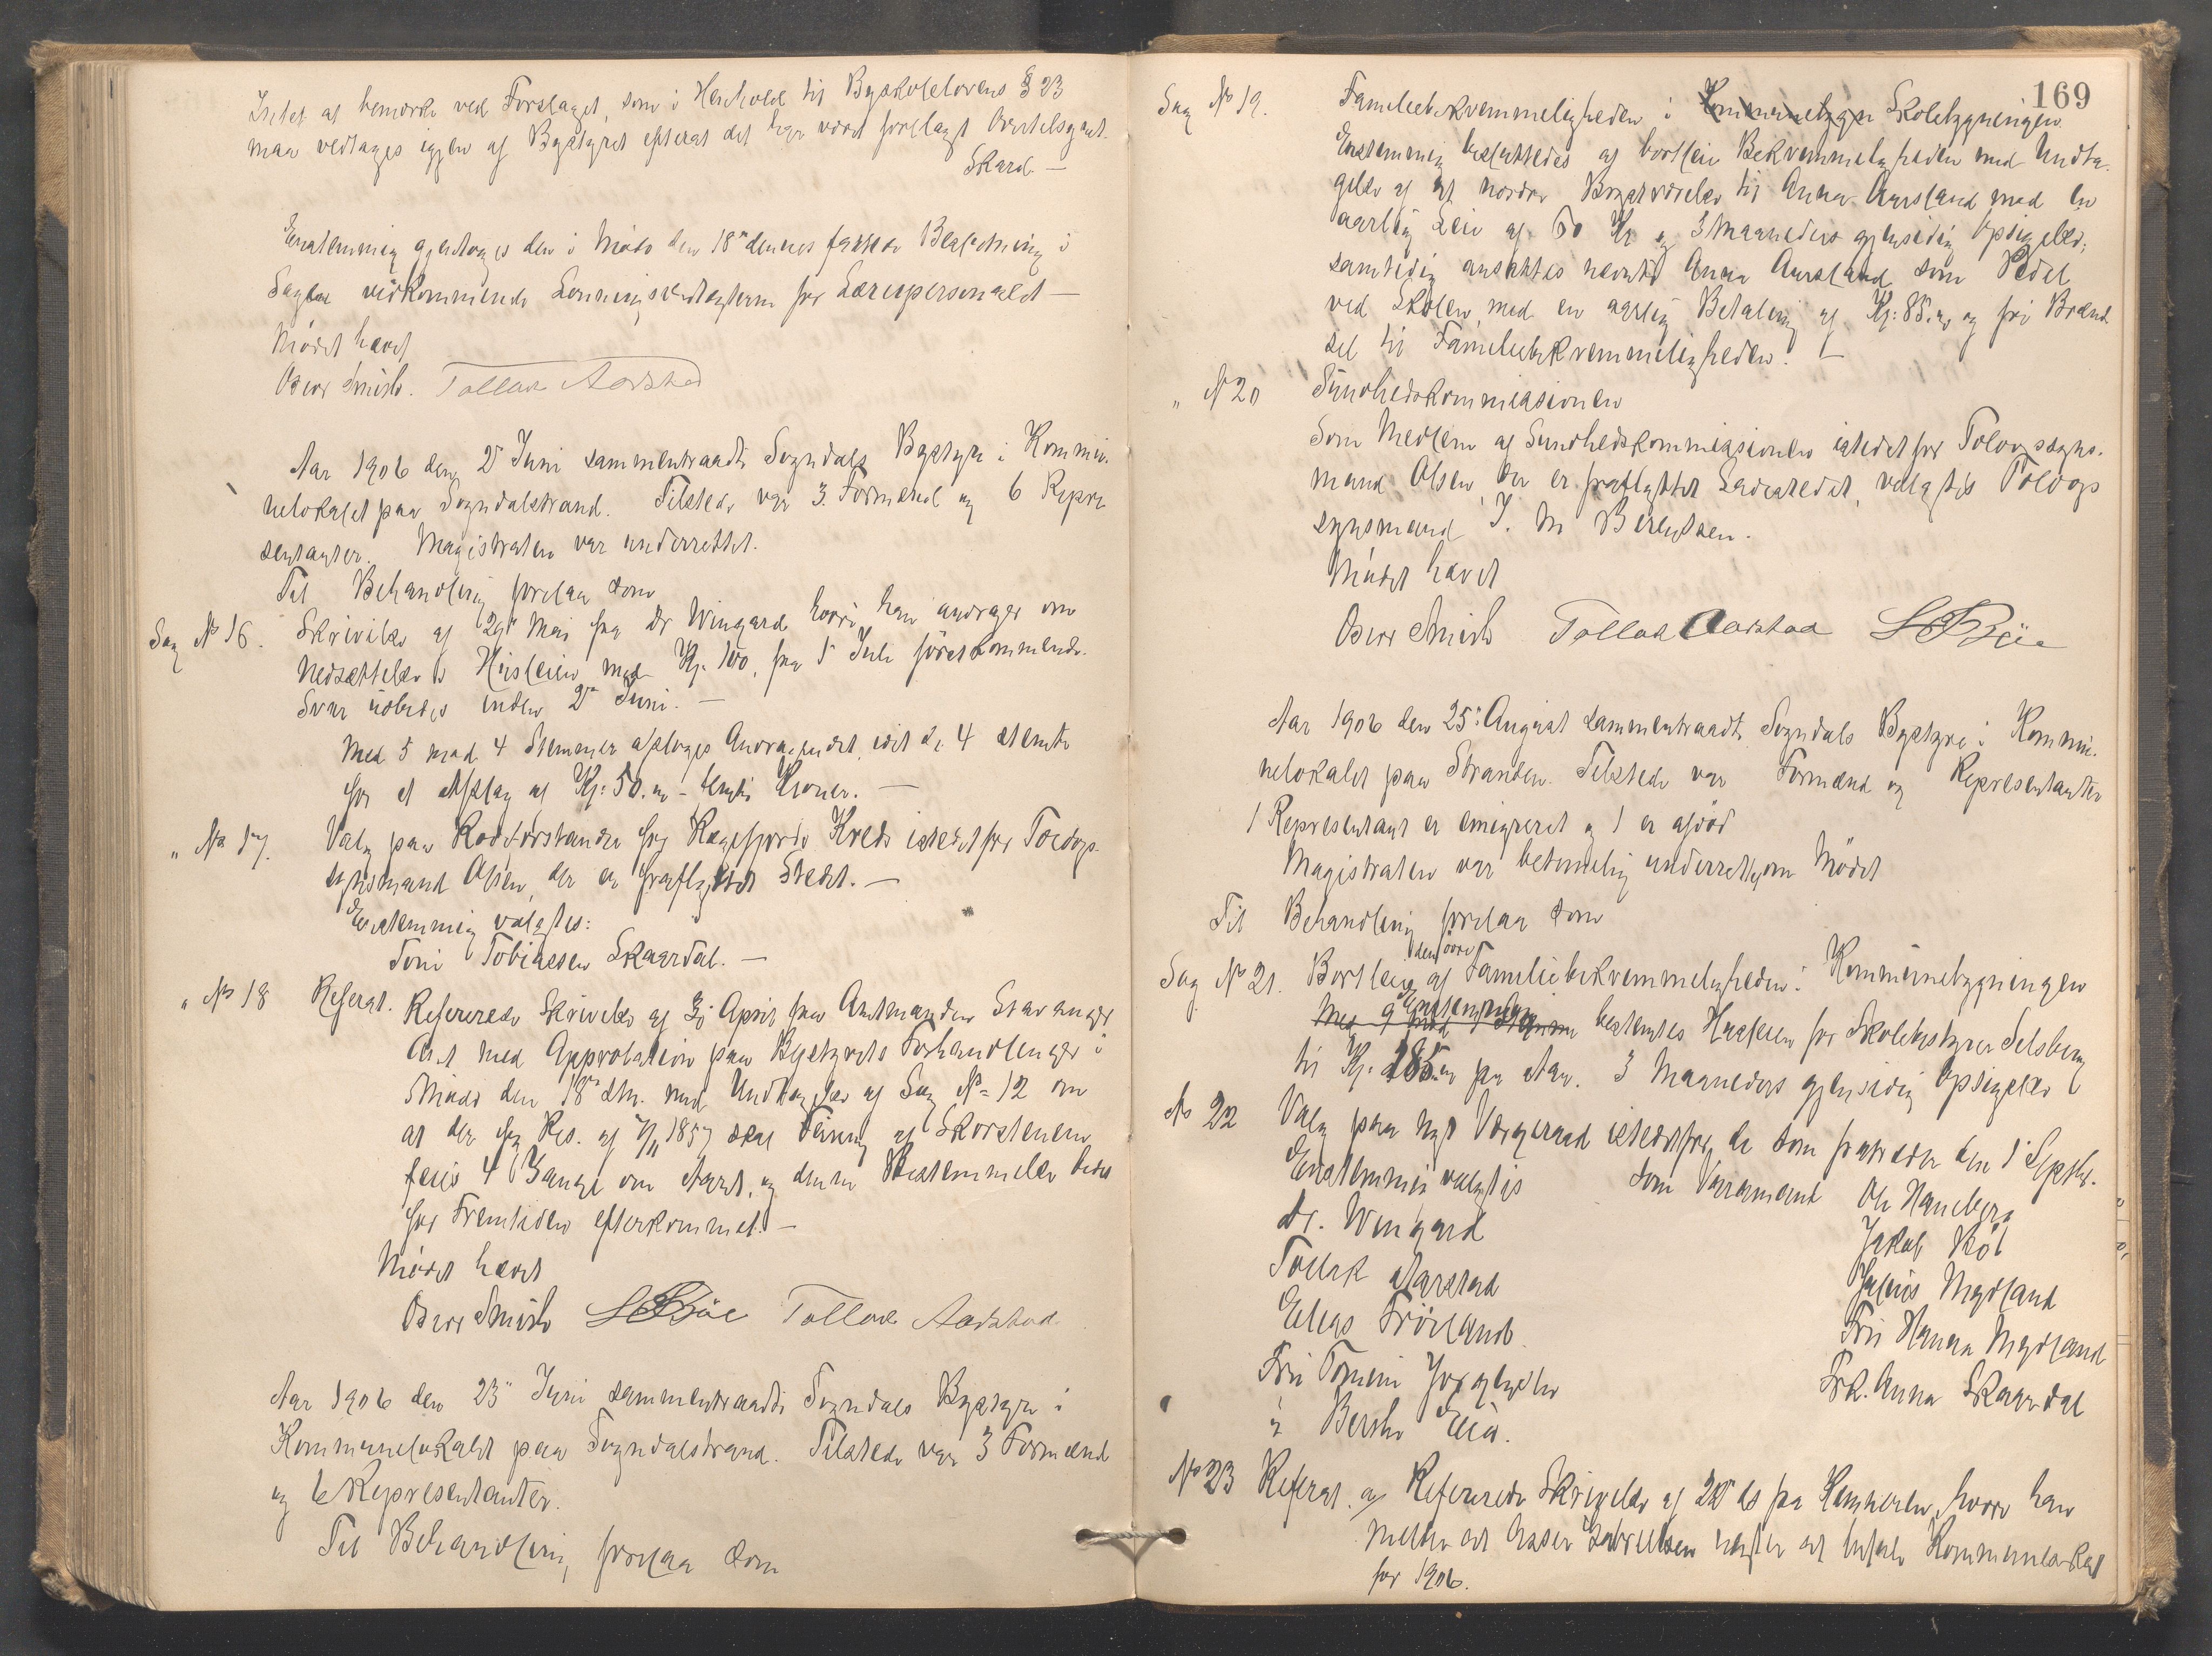 Intet at bemærke ved Forslaget, som i Henhold til Byskolelovens § 23
maa vedtages igjen af Bystyret efterat det har været forelagt Overtilsynet.
Skard. —
Enstemmig gjentoges den i Møde den 18de dennes fattede Beslutning i
Sagen vedkommende Lønningsvedtægterne for Lærerpersonalet —
Mødet hævet
Oscar Smith. Tollak Aarstad
Aar 1906 den 2 Juni sammentraadte Sogndals Bystyre i Kommu-
nelokalet paa Sogndalstrand. Tilstede var 3 Formænd og 6 Repræ-
sentanter. Magistraten var underrettet.
Til Behandling forelaa som
Sag No 16. Skrivelse af 29 Mai fra Dr Wingard hvori han andrager om
Nedsættelse i Husleien med Kr. 100, fra 1 Juli førstkommende.
Svar udbedes inden 2 Juni. —
Med 5 mod 4 Stemmer afsloges Andragendet, idet de 4 stemte
for et Afslag af Kr: 50.00 - femti Kroner. —
" No 17. Valg paa Rodeforstander for Rægefjords Kreds istedetfor Toldop-
synsmand Olsen, der er fraflyttet Stedet. —
Enstemmig valgtes:
Toni Tobiassen Skaardal. —
" No 18 Referat. Refereredes Skrivelse af 30 April fra Amtmanden i Stavanger
Amt med Approbation paa Bystyrets Forhandlinger i
Møde den 18 ds. med Undtagelse af Sag No 12 om
at der før Res. af 7/11 1857 skal Feining af Skorstenene
feies 4 Gange om Aaret, og denne Bestemmelse bedes
for Fremtiden efterkommet. —
Mødet hævet
Oscar Smith Tollak Aarstad
Aar 1906 den 23 Juni sammentraadte Sogndals Bystyre i
Kommunelokalet paa Sogndalstrand. Tilstede var 3 Formænd
og 6 Repræsentanter.
Til Behandling forelaa som
169
Sag No 19. Familiebekvemmeligheden i Kommunebygn Skolebygningen
Enstemmig besluttedes at bortleie Bekvemmeligheden med Undta-
gelse af et nordre Bagværelse til Anna Aarstand mod en
aarlig Leie af 50 Kr og 3 Maaneders gjensidig Opsigelse;
samtidig ansattes nævnte Anna Aarstand som Pedel
ved Skolen, med en aarlig Betaling af Kr: 85.00 og fri Brænd-
sel til Familiebekvemmeligheden. —
" No 20 Sundhedskommissionen
Som Medlem af Sundhedskommissionen istedetfor Toldopsyns-
mand Olsen, der er fraflyttet Ladestedet, valgtes Toldop-
synsmand J. M Berentsen.
Mødet hævet
Oscar Smith Tollak Aarstad
Aar 1906 den 25: August sammentraadte Sogndals Bystyre i Kommu-
nelokalet paa Stranden. Tilstede var Formænd og Repræsentanter
1 Repræsentant er emigreret og 1 er afdød
Magistraten var betimelig underrettet om Mødet
Til Behandling forelaa som
Sag No 21. Bortleie af den øvre Familiebekvemmeligheden i Kommunebygningen
Med 9 mod 1 Stemme Enstemmig bestemtes Husleien for Skolebestyrer Selsberg
til Kr. 185.00 pr Aar. 3 Maaneders gjensidig Opsigelse
No 22 Valg paa nyt Værgeraad istedetfor de som fratræder den 1 Septbr.
Enstemmig valgtes som Varamænd Ole Haneberg
Dr. Wingard Jakob Bøe
Tollak Aarstad Julius Mydland
Elias Frøiland Fru Hanna Mydland
Fru Tomine Jørgensen Frk. Anna Skaardal
" Berthe Eia.
No 23 Referat. a/ Refereredes Skrivelse af 22 ds fra Kemneren, hvori han
melder at Asser Gabrielsen nægter at betale Kommuneskat
for 1906.